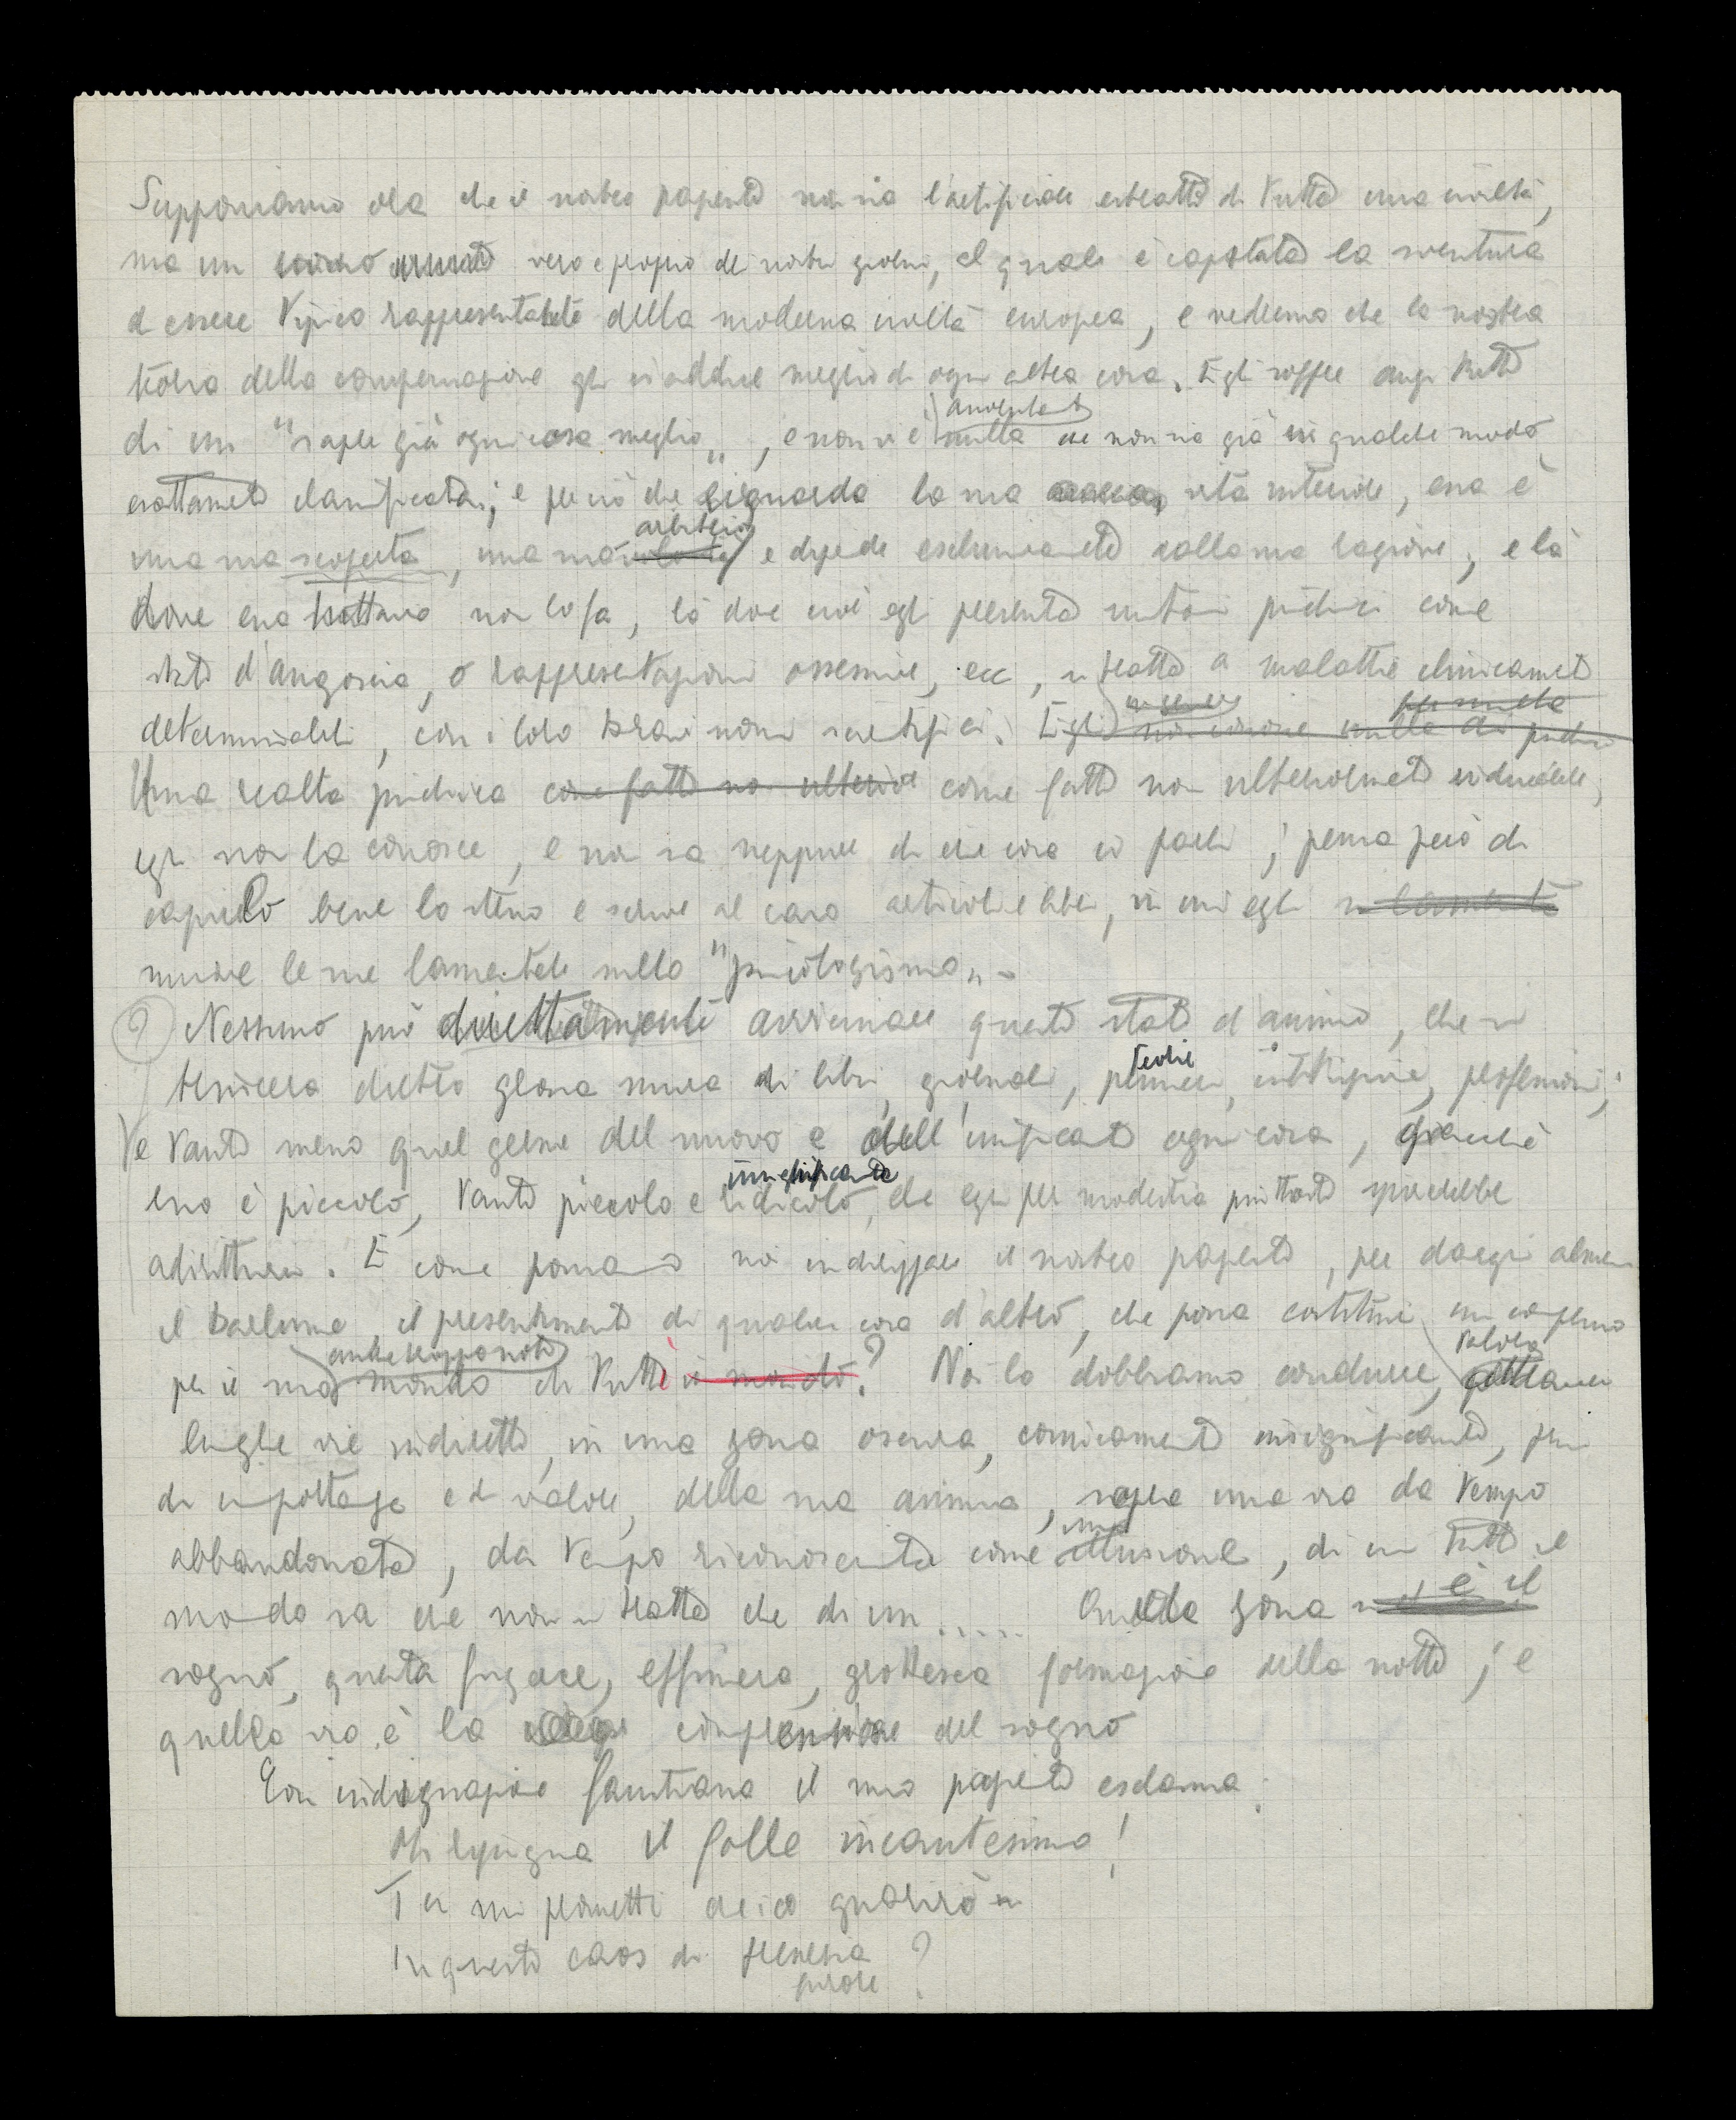 Supponiamo ora che il nostro paziente non sia l'artificiale estratto di tutta una civiltà,
ma un vero e proprio dei nostri giorni, al quale è capitata la sventura
d essere tipico rappresentante della moderna civiltà europea, e vedremo che la nostra
teoria della compensazione gli si addice meglio di ogni altra cosa. Egli soffre anzi tutto
di un "saper già ogni cosa meglio", e non vi è nulla che non sia già in qualche modo
esattamente classificata; e per ciò che riguarda la sua vita interiore, essa è
arbitrio
una sua scoperta, una sua e dipende esclusivamente dalla sua ragione, e là
dove essa tuttavia non lo fa, là dove cioè egli presenta sintomi psichici come
stati d'angoscia, o rappresentazioni ossessive, ecc, si tratta di malattie clinicamente
determinabili, con i loro bravi nomi scientifici. Egli non conosce nulla di psichico
Una realtà psichica come fatto non ulteriore come fatto non ulteriormente riducibile,
egli non la conosce, e non sa neppure di che cosa si parli; pensa però di
capirlo bene lo stesso e scrive al caso articoli e libri, in cui egli si lamenta
muove le sue lamentele sullo "psicologismo".
? Nessuno può direttamente avvicinare questo stato d'animo, che si
teorie
trincera dietro grossa mura di libri, giornali, istituzioni, professioni;
Ve tanto meno quel germe del nuovo e dell'unificato ogni cosa, giacché
insignificante
esso è piccolo, tanto piccolo e ridicolo, che egli per modestia piuttosto sparirebbe
addirittura. E come possiamo noi indirizzare il nostro paziente, per dargli almeno
il barlume, il presentimento di qualche cosa d'altro, che possa costituire un compenso
anche troppo noto
per il suo mondo di tutti i mondi? Noi lo dobbiamo condurre,
lunghe vie indirette, in una zona oscura, comicamente insignificante, priva
di importanza e di valore, della sua anima, sopra una via da tempo
abbandonata, da tempo riconosciuta come illusione, di cui tutto il
mondo sa che non si tratta che di un ..... Questa zona è il
sogno, questa fugace, effimera, grottesca formazione della notte; e
quella via è la comprensione del sogno
Con indignazione faustiana il mio paziente esclama:
Mi ripugna il folle incantesimo!
Tu mi prometti ch'io guarirò
In questo caos di frenesia?